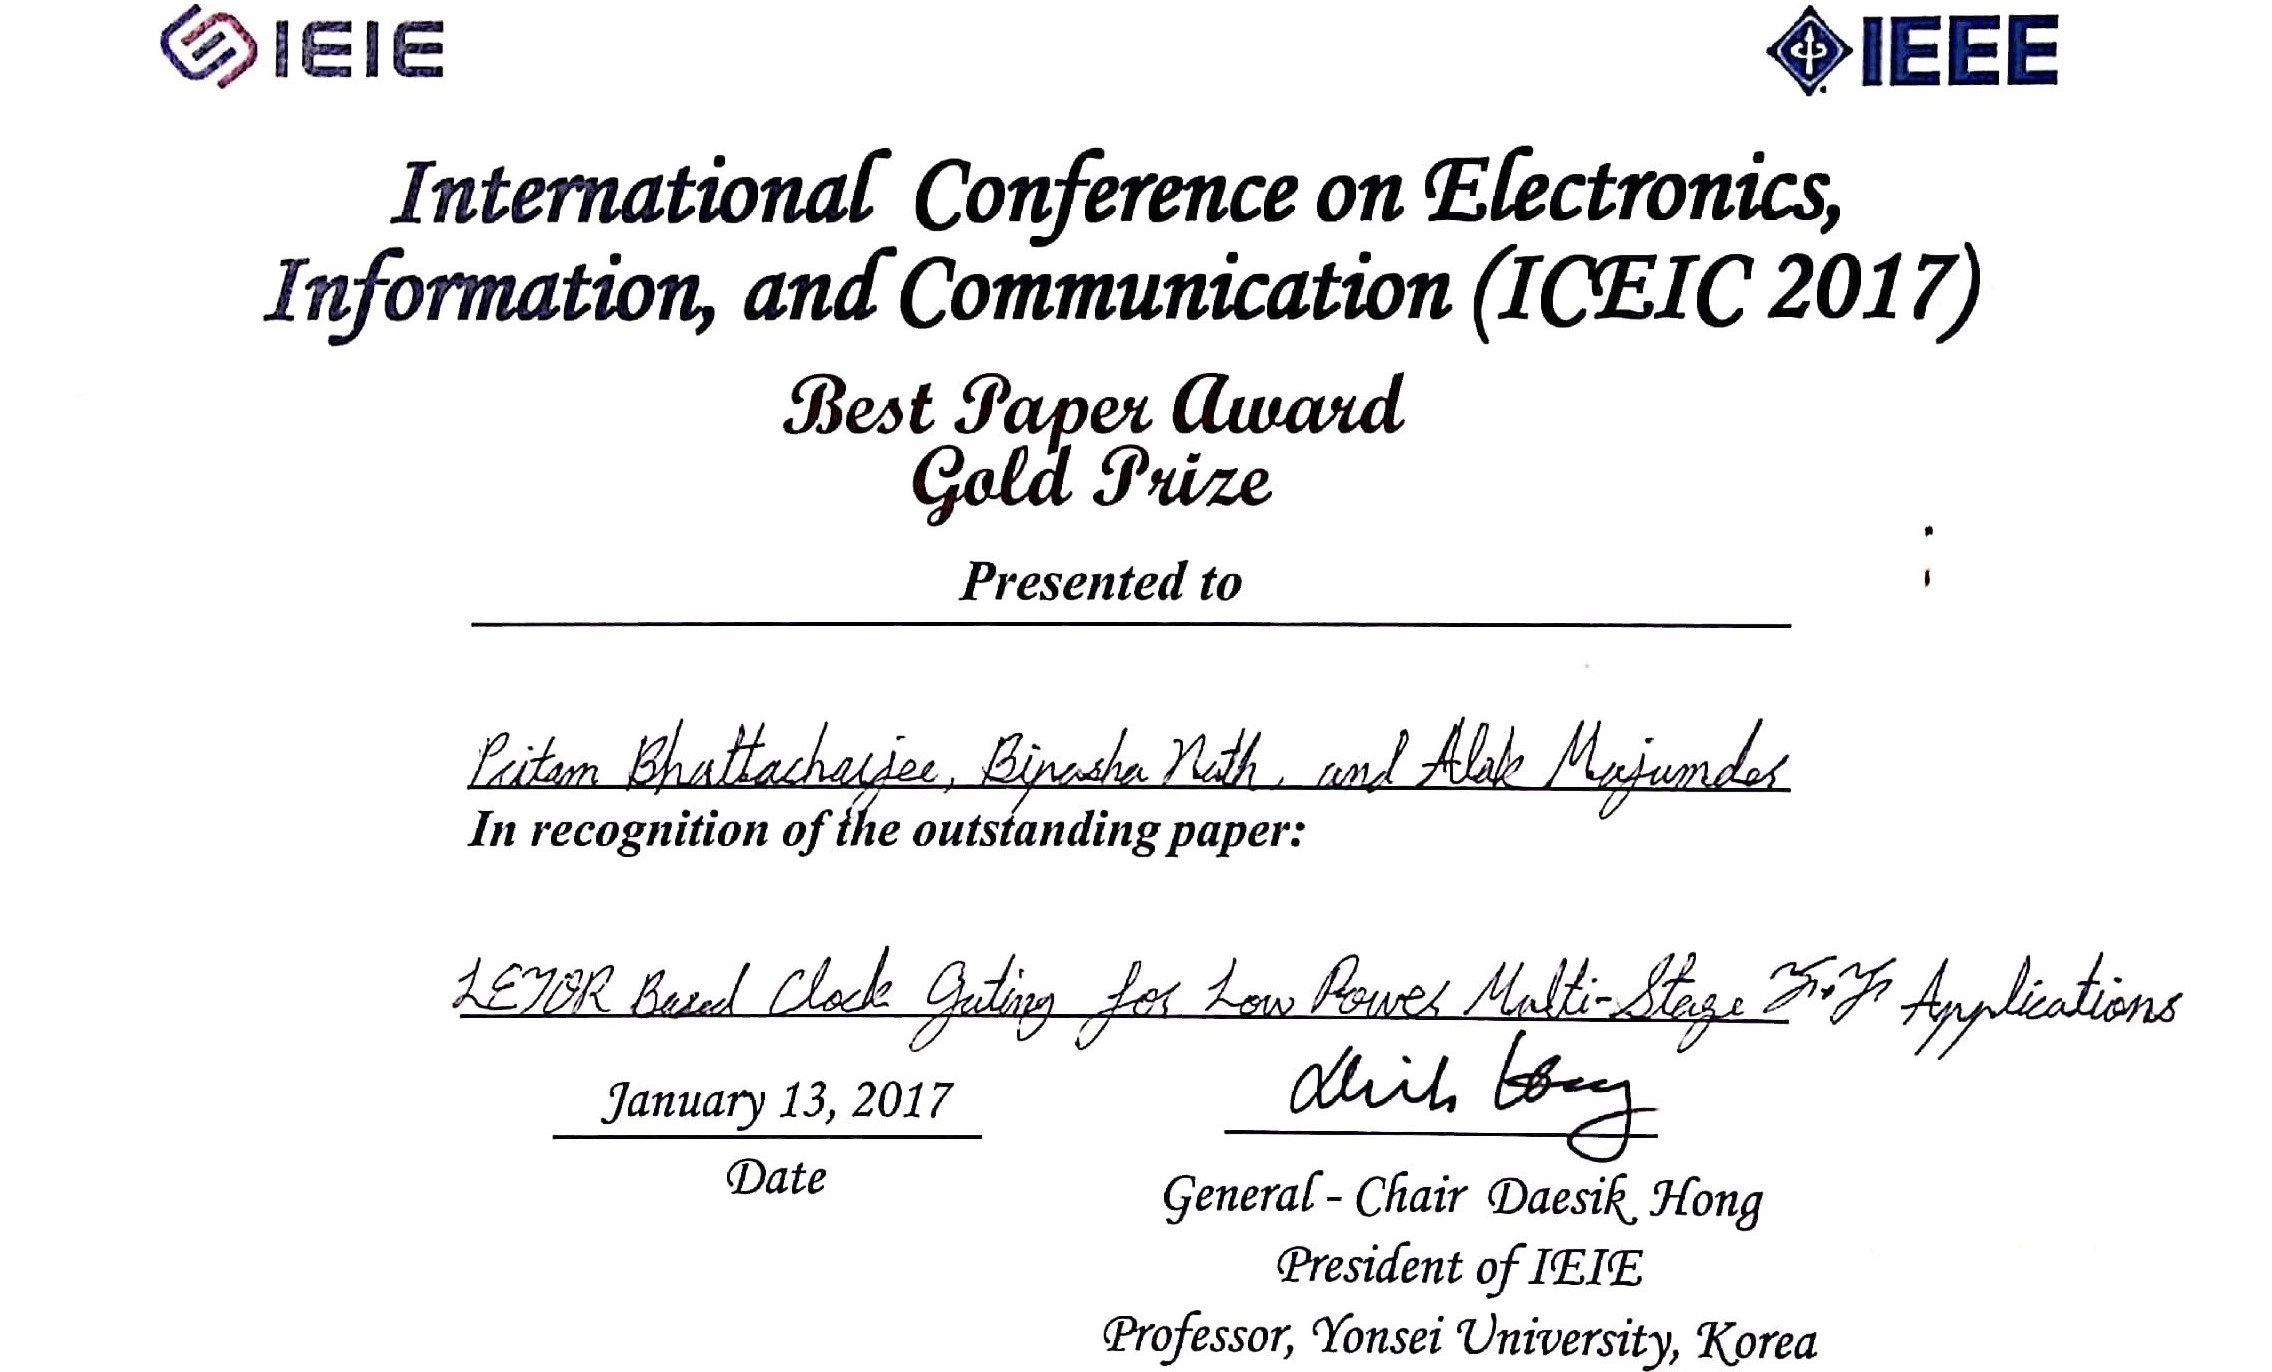 IEIE
IEEE
International Conference on Electronics,
Information, and Communication (ICEIC 2017)
Best Paper Award
Gold Prize
Presented to
Pritam Bhattacharjee, Bipasha Nath, and Alak Majumder
In recognition of the outstanding paper:
LECTOR Based Clock Gating for Low Power Multi-Stage Applications
January 13, 2017
Date
General - Chair Daesik Hong
President of IEIE
Professor, Yonsei University, Korea